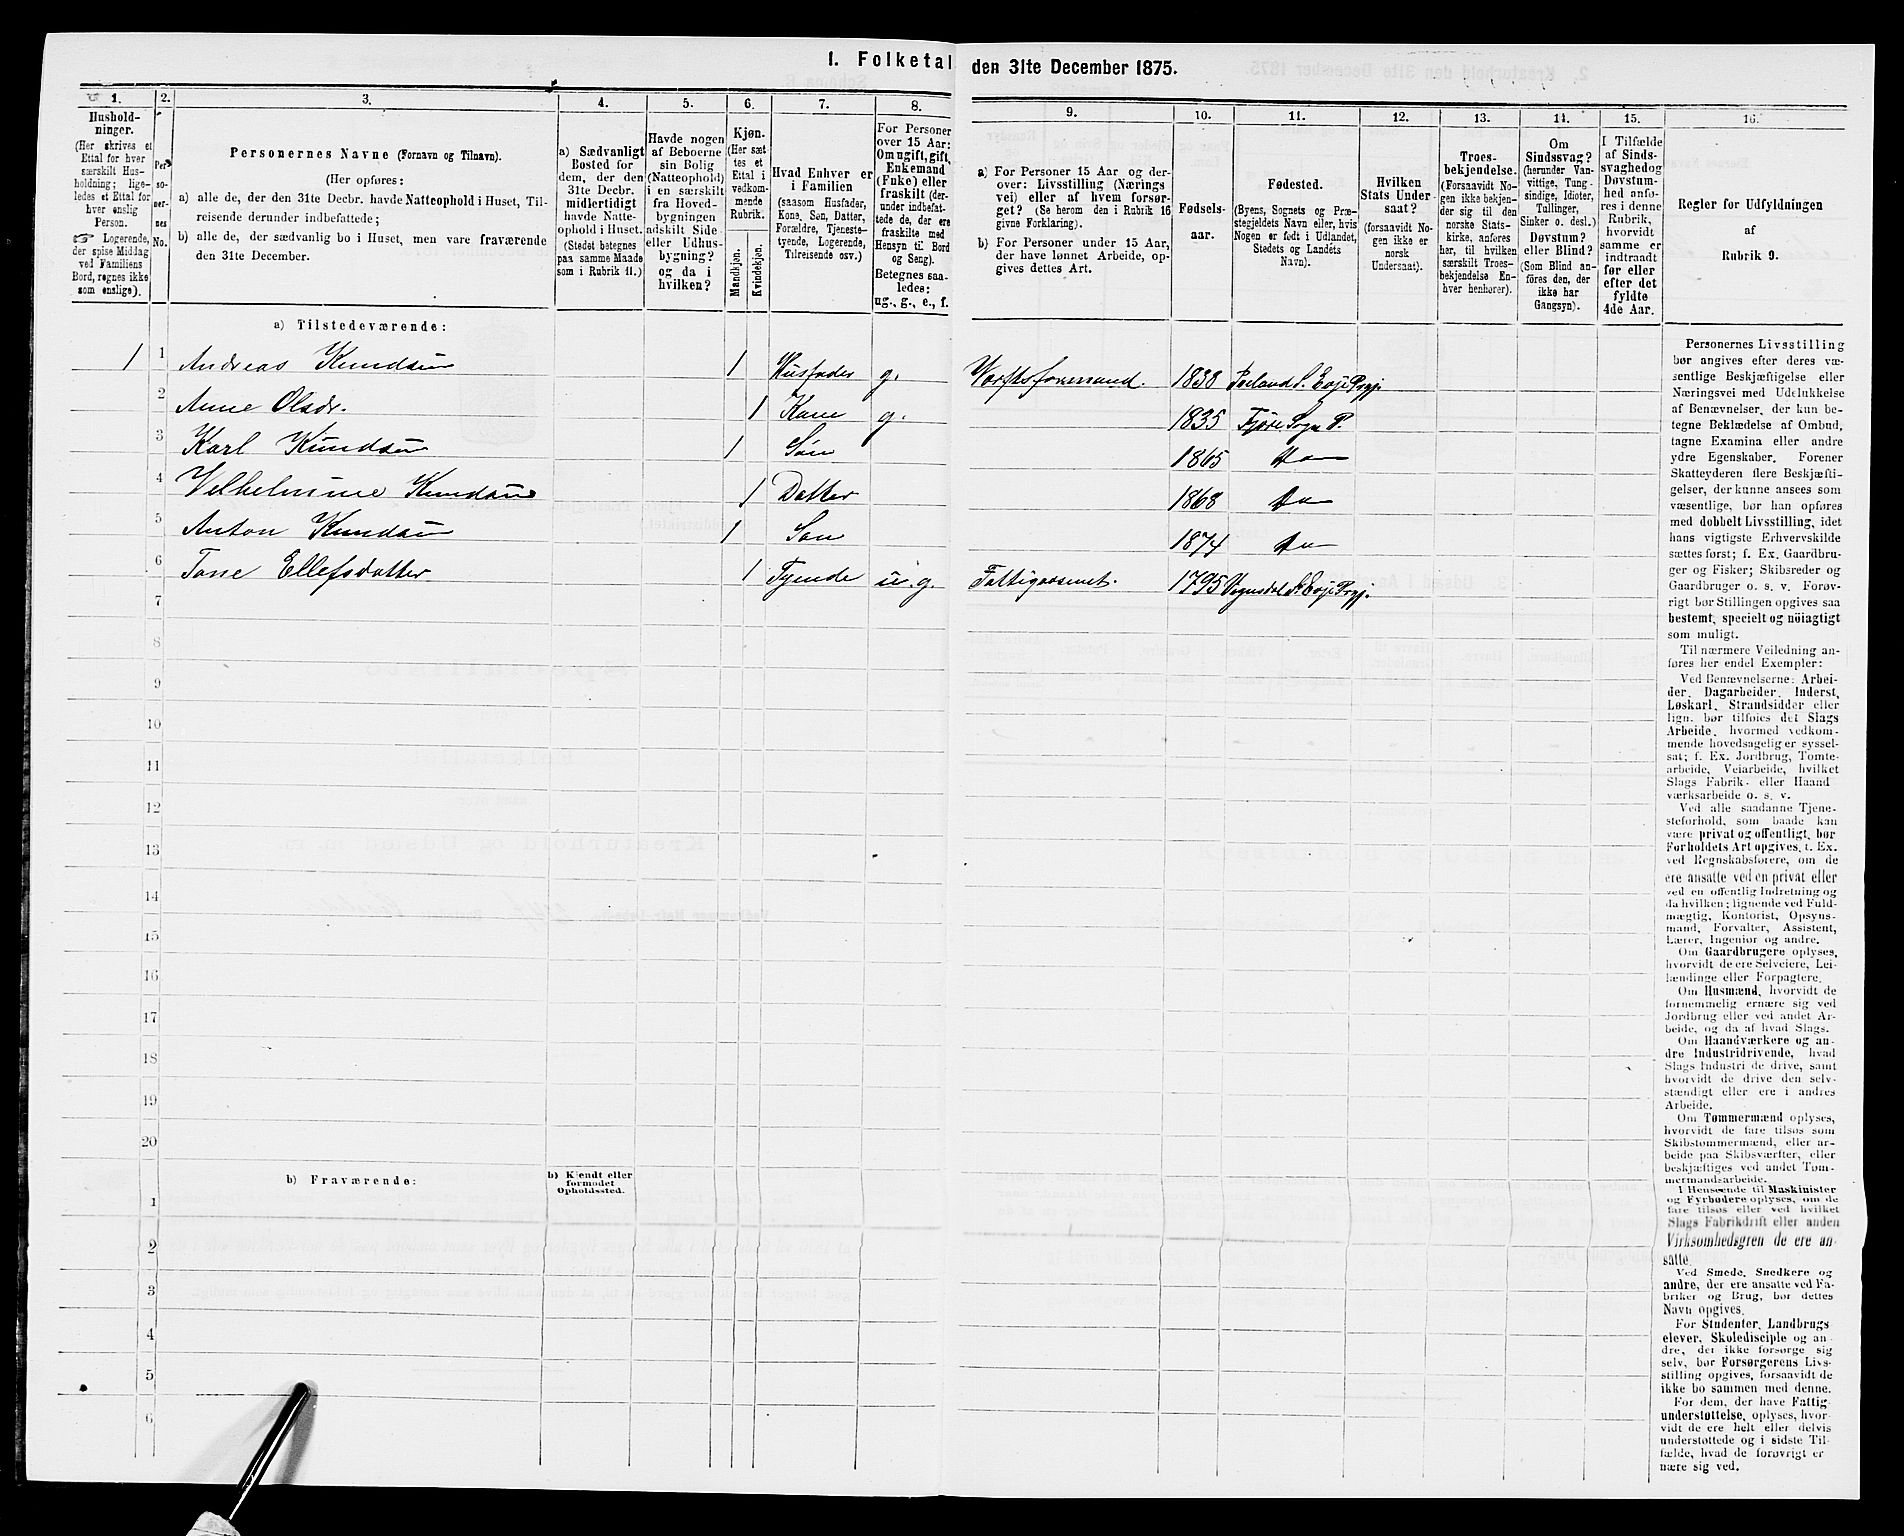 1. Folketal den 31te December 1875.
1. 2. 3. 4. 5. 6. 7. 8. 9. 10. 11. 12. 13. 14. 15. 16.
Hushold-
ninger.
(Her skrives et
Ettal for hver
særskilt Hus-
holdning; lige-
ledes et Ettal for
hver enslig
Person.
☞ Logerende,
der spise Middag
ved Familiens
Bord, regnes ikke
som enslige).
Per
so-
ner-
nes
No.
Personernes Navne (Fornavn og Tilnavn).
(Her opføres:
a) alle de, der den 31te Decbr. havde Natteophold i Huset, Til-
reisende derunder indbefattede;
b) alle de, der sædvanlig bo i Huset, men vare fraværende
den 31te December.
a) Sædvanligt
Bosted for
dem, der den
31te Decbr.
midlertidigt
havde Natte-
ophold i Huset.
(Stedet betegnes
paa samme Maade
som i Rubrik 11.)
Havde nogen
af Beboerne
sin Bolig
(Natteophold)
i en særskilt
fra Hoved-
bygningen
adskilt Side-
eller Udhus-
bygning?
og da i
hvilken?
Kjøn.
(Her sæt
tes et
Ettal i
vedkom-
mende
Rubrik.
Mandkjøn.
Kvindekjøn.
Hvad Enhver er
i Familien
(saasom Husfader,
Kone, Søn, Datter,
Forældre, Tjeneste-
tyende, Logerende,
Tilreisende osv.)
For Personer
over 15 Aar:
Om ugift, gift,
Enkemand
(Enke) eller
fraskilt (der-
under indbefat-
tede de, der ere
fraskilte med
Hensyn til Bord
og Seng).
Betegnes saa-
ledes:
ug., g., e., f.
a) For Personer 15 Aar og der-
over: Livsstilling (Nærings
vei) eller af hvem forsør-
get? (Se herom den i Rubrik 16
givne Forklaring).
b) For Personer under 15 Aar,
der have lønnet Arbeide, op-
gives dettes Art.
Fødsels-
aar.
Fødested.
(Byens, Sognets og Præ-
stegjeldets Navn eller, hvis
Nogen er født i Udlandet,
Stedets og Landets
Navn).
Hvilken
Stats Under
saat?
(forsaavidt No-
gen ikke er
norsk
Undersaat).
Troes-
bekjendelse.
(Forsaavidt No-
gen ikke bekjen-
der sig til den
norske Stats-
kirke, anføres
her, til hvilken
særskilt Troes-
bekjendelse En-
hver henhører).
Om
Sindssvag?
(herunder Van-
vittige, Tung-
sindige, Idioter,
Tullinger,
Sinker o. desl.)
Døvstum?
eller Blind?
(Som Blind an-
føres den, der
ikke har
Gangsyn).
I Tilfælde
af Sinds-
svaghed og
Døvstum-
hed anfø-
res i denne
Rubrik,
hvorvidt
samme er
indtraadt
før eller
efter det
fyldte
4de Aar.
Regler for Udfyldningen
af
Rubrik 9.
a) Tilstedeværende:
1 1 Andreas Knudsen 1 Husfader g. Værftsformand. 1838 S. Eoje Prgj.
2 Anne Olsdr. 1 Kone g. 1835 Fjære Sogn P.
3 Karl Knudsen 1 Søn 1865 Do
4 Velhelmine Knudsen 1 Datter 1868 Do
5 Anton Knudsen 1 Søn 1874 Do
6 Tone Ellefsdatter 1 Tyende u.g. Fattigorsenet. 1795 Vegusdal S. Eoje Prgj.
7
8
9
10
11
12
13
14
15
16
17
18
19
20
b) Fraværende:
b) Kjendt eller
formodet
Opholdssted.
1
2
3
4
5
6
Personernes Livsstilling
bør angives efter deres væ-
sentlige Beskjæftigelse eller
Næringsvei med Udelukkelse
af Benævnelser, der kun be-
tegne Beklædelse af Ombud,
tagne Examina eller andre
ydre Egenskaber. Forener
Skatteyderen flere Beskjæfti-
gelser, der kunne ansees som
væsentlige, bør han opføres
med dobbelt Livsstilling, idet
hans vigtigste Erhvervskilde
sættes først; f. Ex. Gaardbru-
ger og Fisker; Skibsreder og
Gaardbruger o. s. v. Forøv-
rigt bør Stillingen opgives saa
bestemt, specielt og nöiagtigt
som muligt.
Til nærmere Veiledning an-
føres her endel Exempler:
Ved Benævnelserne: Arbei-
der, Dagarbeider, Inderst,
Løskarl, Strandsidder eller
lign. bør tilføies det Slags
Arbeide, hvormed vedkom-
mende hovedsagelig er syssel-
sat; f. Ex. Jordbrug, Tomte-
arbeide, Veiarbeide, hvilket
Slags Fabrik- eller Haand
værksarbeide o. s. v.
Ved alle saadanne Tjene-
steforhold, som baade kan
være privat og offentligt, bør
Forholdets Art opgives, f. Ex.
ved Regnskabsførere, om de
ere ansatte ved en privat eller
ved en offentlig Indretning og
da hvilken; lignende ved Fuld-
mægtig, Kontorist, Opsyns-
mand, Forvalter, Assistent,
Lærer, Ingeniør og andre.
Om Gaardbrugere oplyses,
hvorvidt de ere Selveiere, Lei-
lændinge eller Forpagtere.
Om Husmænd, hvorvidt de
fornemmelig ernære sig ved
Jordbrug eller ved andet Ar-
beide, og da af hvad Slags.
Om Haandværkere og an-
dre Industridrivende, hvad
Slags Industri de drive, samt
hvorvidt de drive den selv-
stændigt eller ere i andres
Arbeide.
Om Tømmermænd oplyses,
hvorvidt de fare tilsøs som
Skibstømmermænd, eller ar-
beide paa Skibsværfter, eller
beskjæftiges ved andet Tøm-
mermandsarbeide.
I Henseende til Maskinister
og Fyrbødere oplyses, om de
fare tilsøs eller ved hvilket
Slags Fabrikdrift eller anden
Virksomhedsgren de ere an-
satte.
Ved Smede, Snedkere og
andre, der ere ansatte ved Fa-
briker og Brug, bør dettes
Navn opgives.
For Studenter, Landbrugs
elever, Skoledisciple og an-
dre, der ikke forsørge sig
selv, bør Forsørgerens Livs-
stilling opgives, forsaavidt de
ikke bo sammen med denne.
For dem, der have Fattig
understøttelse, oplyses, hvor-
vidt de ere helt eller delvis
understøttede og i sidste Til-
fælde, hvad de forøvrigt er
nære sig ved.